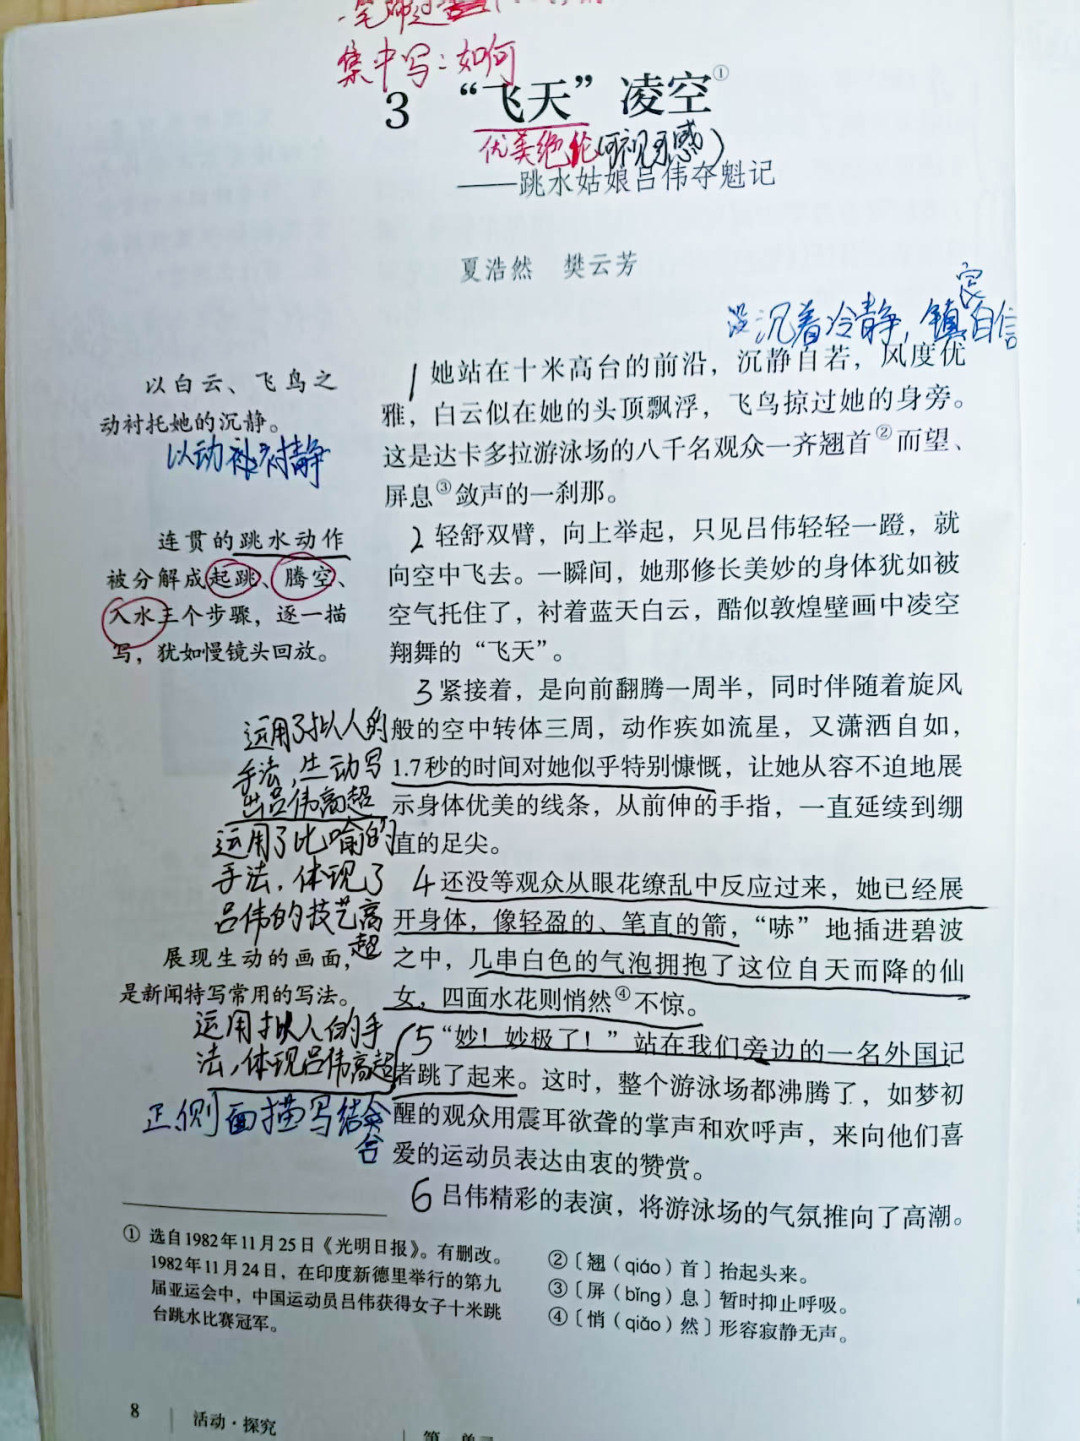 集中写：如何
3 “飞天”凌空①
优美绝伦(可视可感)
——跳水姑娘吕伟夺魁记
夏浩然 樊云芳
沉着冷静，镇定自信
以白云、飞鸟之
动衬托她的沉静。
以动衬静
连贯的跳水动作
被分解成起跳、腾空、
入水三个步骤，逐一描
写，犹如慢镜头回放。
运用了拟人的
手法，生动写
出吕伟高超
运用了比喻的
手法，体现了
吕伟的技艺高
超
展现生动的画面，
是新闻特写常用的写法。
运用拟人的手
法，体现吕伟高超
正侧面描写结合
合
1 她站在十米高台的前沿，沉静自若，风度优
雅，白云似在她的头顶飘浮，飞鸟掠过她的身旁。
这是达卡多拉游泳场的八千名观众一齐翘首②而望、
屏息③敛声的一刹那。
2 轻舒双臂，向上举起，只见吕伟轻轻一蹬，就
向空中飞去。一瞬间，她那修长美妙的身体犹如被
空气托住了，衬着蓝天白云，酷似敦煌壁画中凌空
翔舞的“飞天”。
3 紧接着，是向前翻腾一周半，同时伴随着旋风
般的空中转体三周，动作疾如流星，又潇洒自如，
1.7秒的时间对她似乎特别慷慨，让她从容不迫地展
示身体优美的线条，从前伸的手指，一直延续到绷
直的足尖。
4 还没等观众从眼花缭乱中反应过来，她已经展
开身体，像轻盈的、笔直的箭，“哧”地插进碧波
之中，几串白色的气泡拥抱了这位自天而降的仙
女，四面水花则悄然④不惊。
5 “妙！妙极了！”站在我们旁边的一名外国记
者跳了起来。这时，整个游泳场都沸腾了，如梦初
醒的观众用震耳欲聋的掌声和欢呼声，来向他们喜
爱的运动员表达由衷的赞赏。
6 吕伟精彩的表演，将游泳场的气氛推向了高潮。
① 选自1982年11月25日《光明日报》。有删改。
1982年11月24日，在印度新德里举行的第九
届亚运会中，中国运动员吕伟获得女子十米跳
台跳水比赛冠军。
②〔翘（qiáo）首〕抬起头来。
③〔屏（bǐng）息〕暂时抑止呼吸。
④〔悄（qiǎo）然〕形容寂静无声。
8 活动·探究